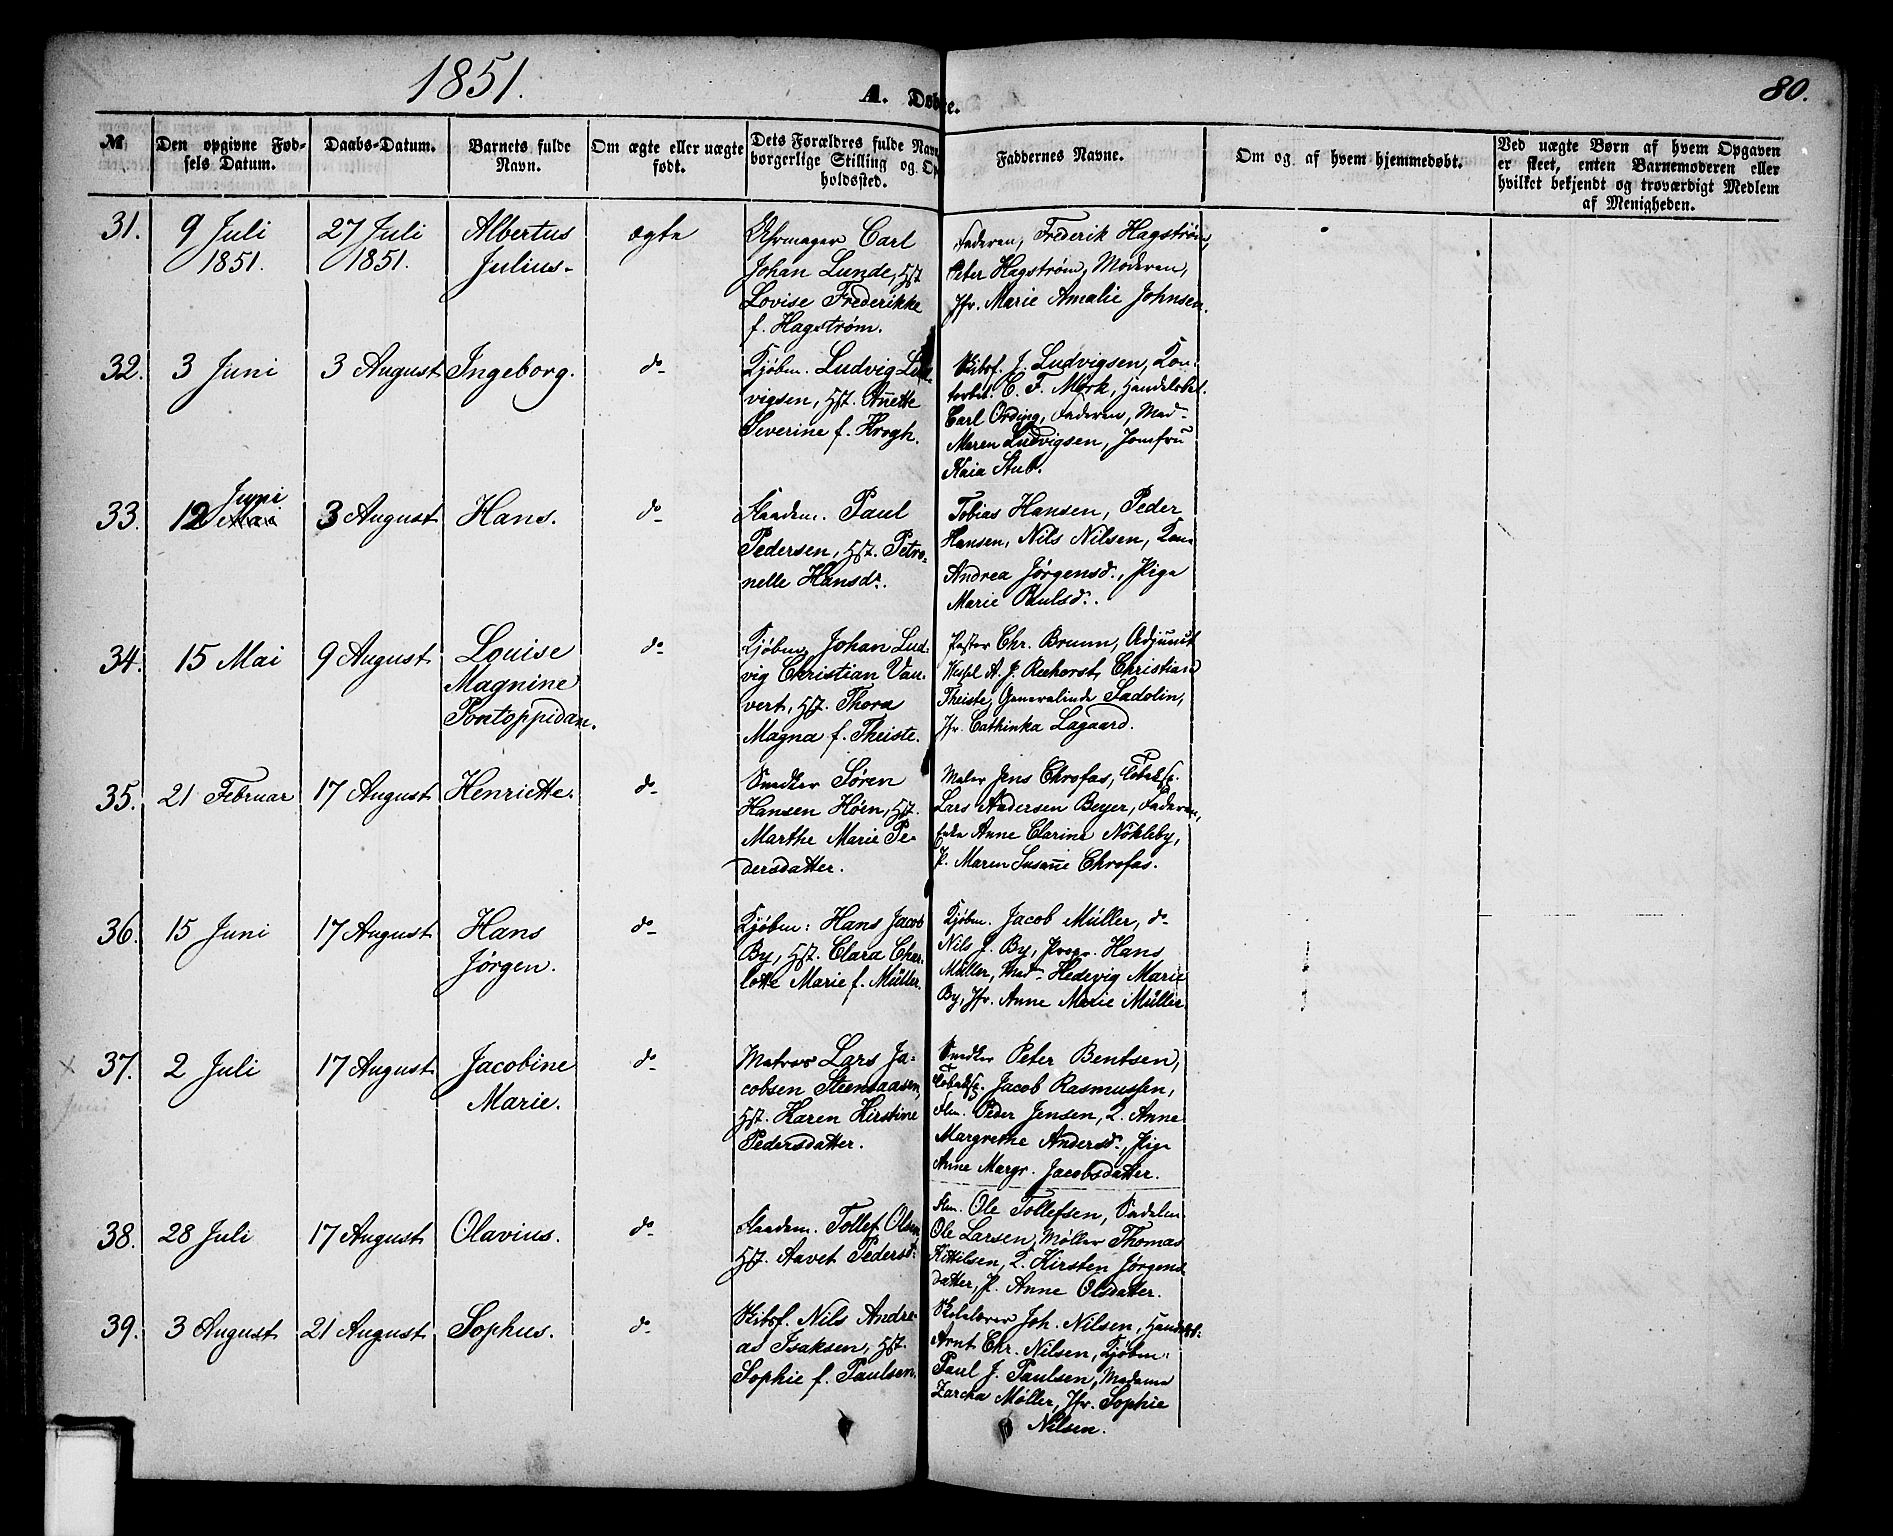 1851.
A. Døbte.
80.
№
Den opgivne Fød-
sels Datum.
Daabs-Datum.
Barnets fulde
Navn.
Om ægte eller uægte
født.
Dets Forældres fulde Navn
borgerlige Stilling og Op
holdssted.
Faddernes Navne.
Om og af hvem hjemmedøbt.
Ved uægte Børn af hvem Opgaven
er skeet, enten Barnemoderen eller
hvilket bekjendt og troværdigt Medlem
af Menigheden.
31.
9 Juli
1851.
27 Juli
1851.
Albertus
Julius.
ægte
Uhrmager Carl
Johan Lunde, Hst.
Lovise Frederikke
f. Hagstrøm.
Faderen, Frederik Hagstrøm,
Peter Hagstrøm, Moderen,
Jfr. Marie Amalie Johnsen.
32.
3 Juni
3 August
Ingeborg.
do
Kjøbm. Ludvig Lud
vigsen, Hst. Anette
Severine f. Krogh.
Skibsf. J. Ludvigsen, Kon-
torbet. C. F. Mørk, Handelsbet.
Carl Ording, Faderen, Mad.
Maren Ludvigsen, Jomfru
Kaia Stub.
33.
Juni
12 Mai
3 August
Hans.
do
Flaadem. Paul
Pedersen, Hst. Petro-
nelle Hansdr.
Tobias Hansen, Peder
Hansen, Nils Nilsen, Kon.
Andrea Jørgensd., Pige
Marie Paulsdr.
34.
15 Mai
9 August
Louise
Magnine
Pontoppidan.
do
Kjøbm. Johan Lud-
vig Christian Vau-
vert, Hst. Thora
Magna f. Theiste.
Pastor Chr. Bruun, Adjunkt
Wessel A. J. Reehorst, Christian
Theiste, Generalinde Sadolin,
Jfr. Cathinka Lagaard.
35.
21 Februar
17 August
Henriette.
do
Snedker Søren
Hansen Høen, Hst.
Marthe Marie Pe-
dersdatter.
Maler Jens Chrofas,
Lars Andersen Beyer, Faderen,
Enke Anne Clarine Nøkleby,
P. Maren Susanne Chrofas.
36.
15 Juni
17 August
Hans
Jørgen.
do
Kjøbm: Hans Jacob
By, Hst. Clara Char-
lotte Marie f. Müller.
Kjøbm. Jacob Müller, do
Nils J. By, Propr. Hans
Müller, Mad. Hedevig Marie
By, Jfr. Anne Marie Müller
37.
Juni
2 Juli
17 August
Jacobine
Marie.
do
Matros Lars Ja-
cobsen Steensaasen,
Hst. Karen Kirstine
Pedersdatter.
Snedker Peter Bentsen,
Jacob Rasmussen,
Flm. Peder Jensen, K. Anne
Margrethe Andersd., Pige
Anne Margr. Jacobsdatter.
38.
28 Juli
17 August
Olavius.
do
Flaadem. Tollef Olsen
Hst. Aavet Pedersd:
Flm. Ole Tollefsen, Sadelm.
Ole Larsen, Møller Thomas
Kittilsen, K. Kirsten Jørgens
datter, P. Anne Olsdatter.
39.
3 August
21 August
Sophus.
do
Skibsf. Nils Andre-
as Isaksen, Hst.
Sophie f. Paulsen.
Skolelærer Joh. Nilsen, Handelsb:
Arnt Chr. Nilsen, Kjøbm:
Paul J. Paulsen, Madame
Zarcha Møller, Jfr. Sophie
Nilsen.